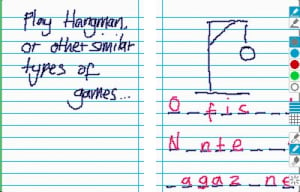 Play Hangman,
or other similar
types of
games...
O _ f i s _ _
N _ n t e _ _
_ a g a z _ n e